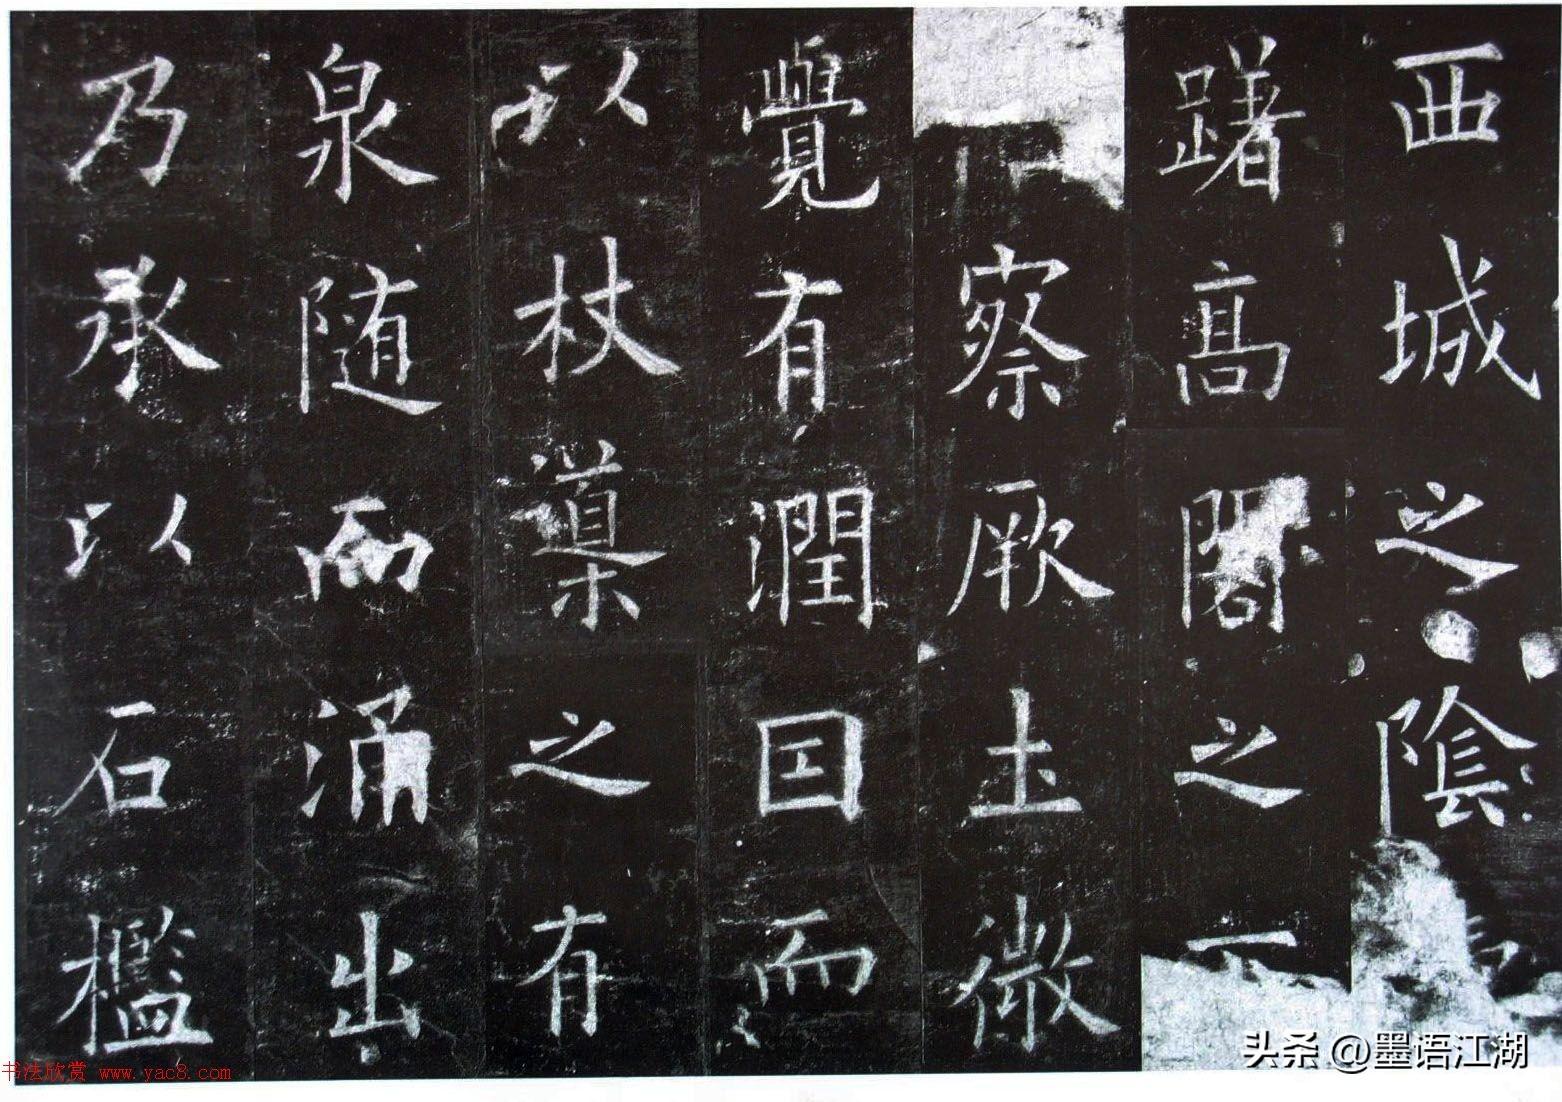 西城之陰
躇髙閣之下
察厥土微
覺有潤囙而
以杖導之有
泉随而涌出
乃承以石檻
头条 @墨语江湖
书法欣赏 www.yac8.com